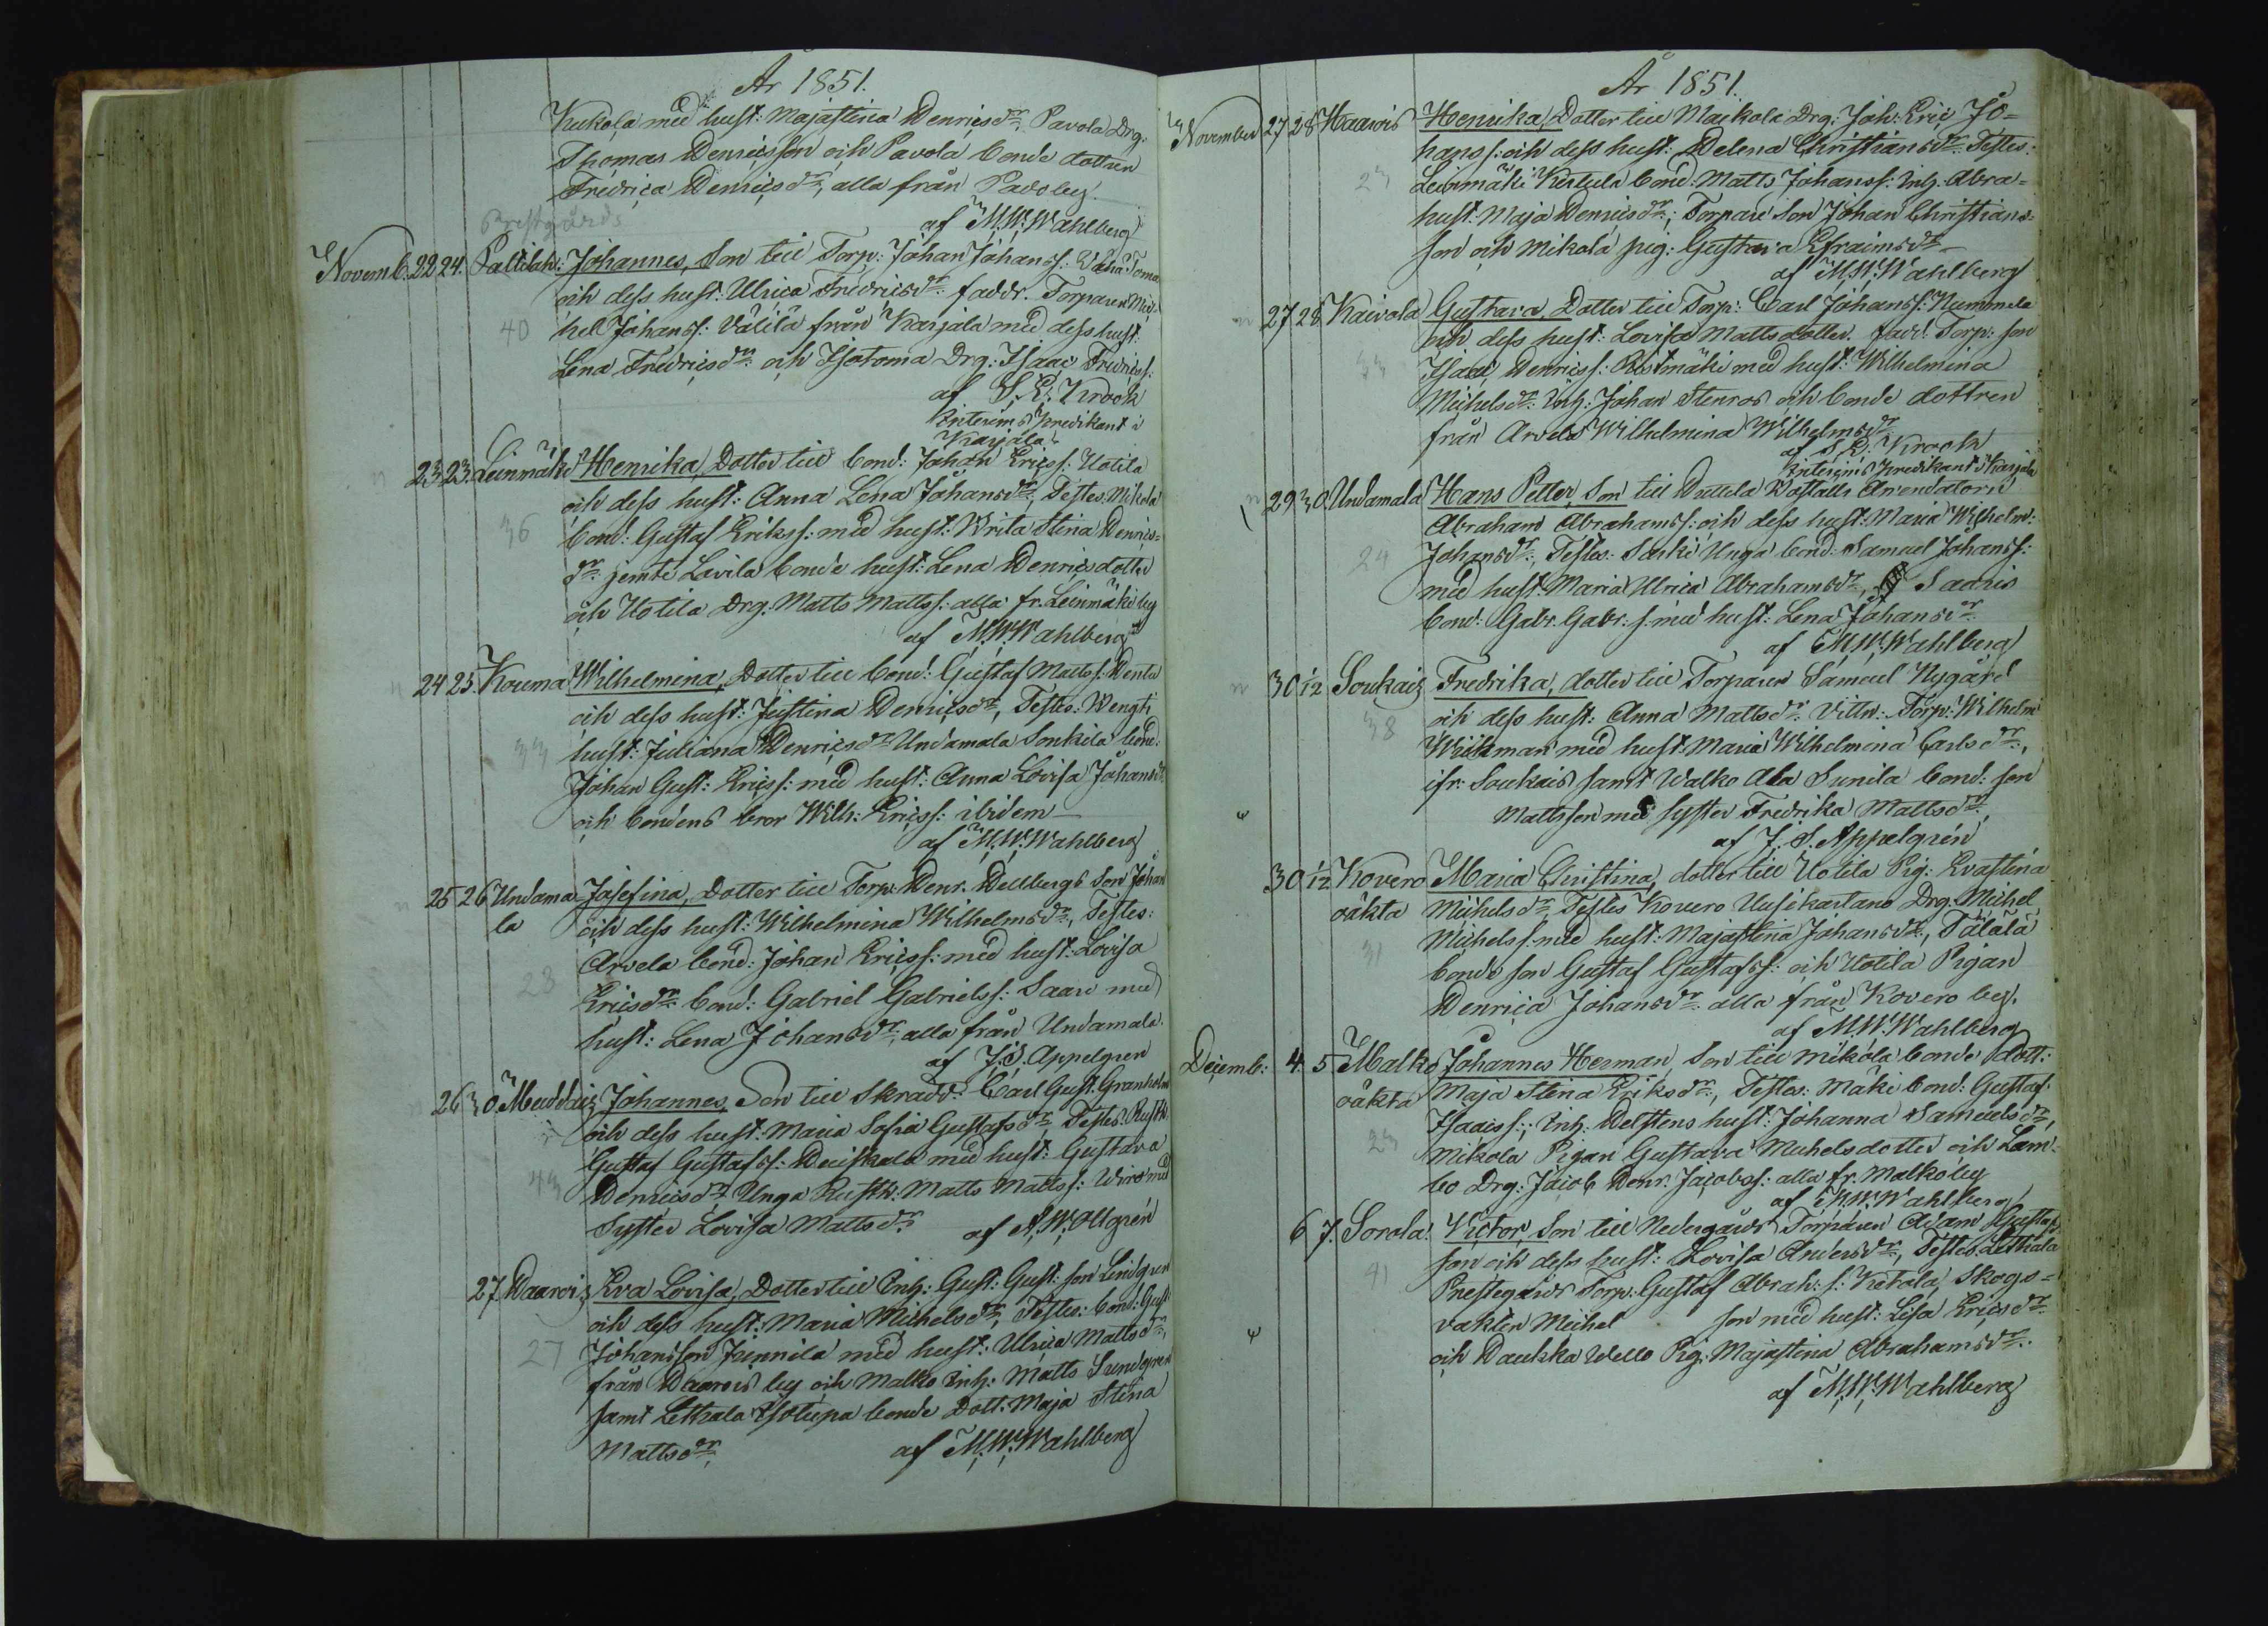 År 1851.
Kukola med hust: Majastina Henricsdr. Pavola Drg.
Thomas Henricsson och Pavola bonde dottren
Fredrica Henricsdr, alla från Padoby.
af M.W. Wahlberg
Prestgårds
Novemb. 22 24. Paltilaht: Johannes, Son till Torp: Johan Johanss: Vähä Toma
och dess hust: Ulrica Fredricsdr: faddr. Torparen Mic-
40 hel Johanss: Välilä från Karjala med dess hust:
Lena Fredricsdr. och Isotoma Drg: Isaac Fredricss:
af S.E. Krook
Interims Predikant i
Karjala.
n 23 23. Leinmäki Henrika, Dotter till bond: Johan Ericss: Uotila
och dess hust: Anna Lena Johansdr., Testes: Mikola
36 bond: Gustaf Erikss: med hust: Brita Stina Henrics=
dr. jemte Lavila bonde hust: Lena Henricsdotter
och Uotila Drg. Matts Mattss: alla fr. Leinmäki by
af M.W. Wahlberg
n 24 25. Kouma Wilhelmina, Dotter till bond: Gustaf Mattss: Henla
och dess hust: Justina Henricsdr., Testes: Hengti
33 hust: Juliana Henricsdr. Undamala Sonkila bond:
Johan Gust: Ericss: med hust: Anna Lovisa Johansdr.
och bondens bror Wilh: Ericss: ibidem
af M.W. Wahlberg
n 25 26 Undama- Josefina, Dotter till Torp: Henr. Hellbergs son Johan
la och dess hust: Wilhelmina Wilhelmsdr., Testes:
Arvela bond: Johan Ericss: med hust: Lovisa
28 Ericsdr: bond: Gabriel Gabrielss: Saari med
hust: Lena Johansdr., alla från Undamala.
af J.S. Appelgren
n 26 30. Muddais Johannes, Son till Skradd: Carl Gust. Granholm
och dess hust: Maria Sofia Gustafsdr., Testes: Rusth:
Gustaf Gustafss: Heiskala med hust: Gustava
43 Henricsdr. Unga Rusth: Matts Mattss: Wiro med
Syster Lovisa Mattsdr. af A.W. Allgrén
27. Haarois Eva Lovisa, Dotter till Inh: Gust: Gust: son Lindgren
och dess hust: Maria Michelsdr., Testes: bond: Gust:
27 Johansson Junnila med hust: Ulrica Mattsdr.,
från Haarois by och Malko Inh: Matts Sundgren
samt Lethala Isotupa bonde Dott. Maja Stina
Mattsdr. af M.W. Wahlberg
År 1851.
November 27 28 Haarois Henrika, Dotter till Maikola Drg: Joh: Eric Jo-
hanss: och dess hust: Helena Christiansdr. Testes:
23 Leinmäki Kertula bond: Matts Johanss: Inh: Abra=
hust: Maja Henricsdr.; Torpare Son Johan Christians=
son och Mikola pig: Gustava Efraimsdr.
af M.W. Wahlberg
n 27 28 Kaivola Gustava, Dotter till Torp: Carl Johanss: Nummela
och dess hust: Lovisa Mattsdotter. fadd: Torp: son
33 Isaac Henricss: Ristmäki med hust: Wilhelmina
Michelsdr: Inh: Johan Stenros och bonde dottren
från Arvela Wilhelmina Wilhelmsdr.
af S.E. Krook
Interims Predikant i Karjala
n 29 30. Undamala Hans Petter, Son till Huttila Boställs Arrendatorn
Abraham Abrahamss: och dess hust: Maria Wilhelm:
24 Johansdr., Testes: Sarki Unga bond: Samuel Johanss:
med hust: Maria Ulrica Abrahamsdr., Saaris
bond: Gabr. Gabr. s. med hust: Lena Johansdr.
af M.W. Wahlberg
n 30 1/12 Soukais Fredrika, dotter till Torparen Samuel Nygård
38 och dess hust: Anna Mattsdr. Vittn: Torp: Wilhelm
Wickman med hust: Maria Wilhelmina Carlsdr.,
ifr: Soukais samt Walko Ala Sunila bond: son
Mattsson med syster Fredrika Mattsdr,
af J.S. Appelgrén
30 1/12 Kovero Maria Christina, dotter till Uotila Pig: Evastina
oäkta Michelsdr, Testes Kovero Uusikartano Drg: Michel
31 Michelss: med hust: Majastina Johansdr., Tälälä
bonde son Gustaf Gustafss: och Uotila Pigan
Henrica Johansdr. alla från Kovero by.
af M.W. Wahlberg
Decemb: 4. 5 Malko Johannes Herman, Son till Mikola bonde dott:
oäkta Maja Stina Eriksdr., Testes: Mäki bond: Gustaf:
23 Isaacss:; Inh: Helstens hust: Johanna Samuelsdr,
Mikola Pigan Gustava Michelsdotter och Lam-
bo Drg: Jacob Henr: Jacobss: alla fr. Malko by
af M.W. Wahlberg
6 7. Sorola. Victor, Son till Nedergårds Torparen Adam Gustafs
son och dess hust: Lovisa Andersdr., Testes: Lethala
41 Prestegårds Torp: Gustaf Abrah: s: Ketala, Skogs=
vakten Michel son med hust: Lisa Ericsdr
och Haukka Wello Pig: Majastina Abrahamsdr..
af M.W. Wahlberg